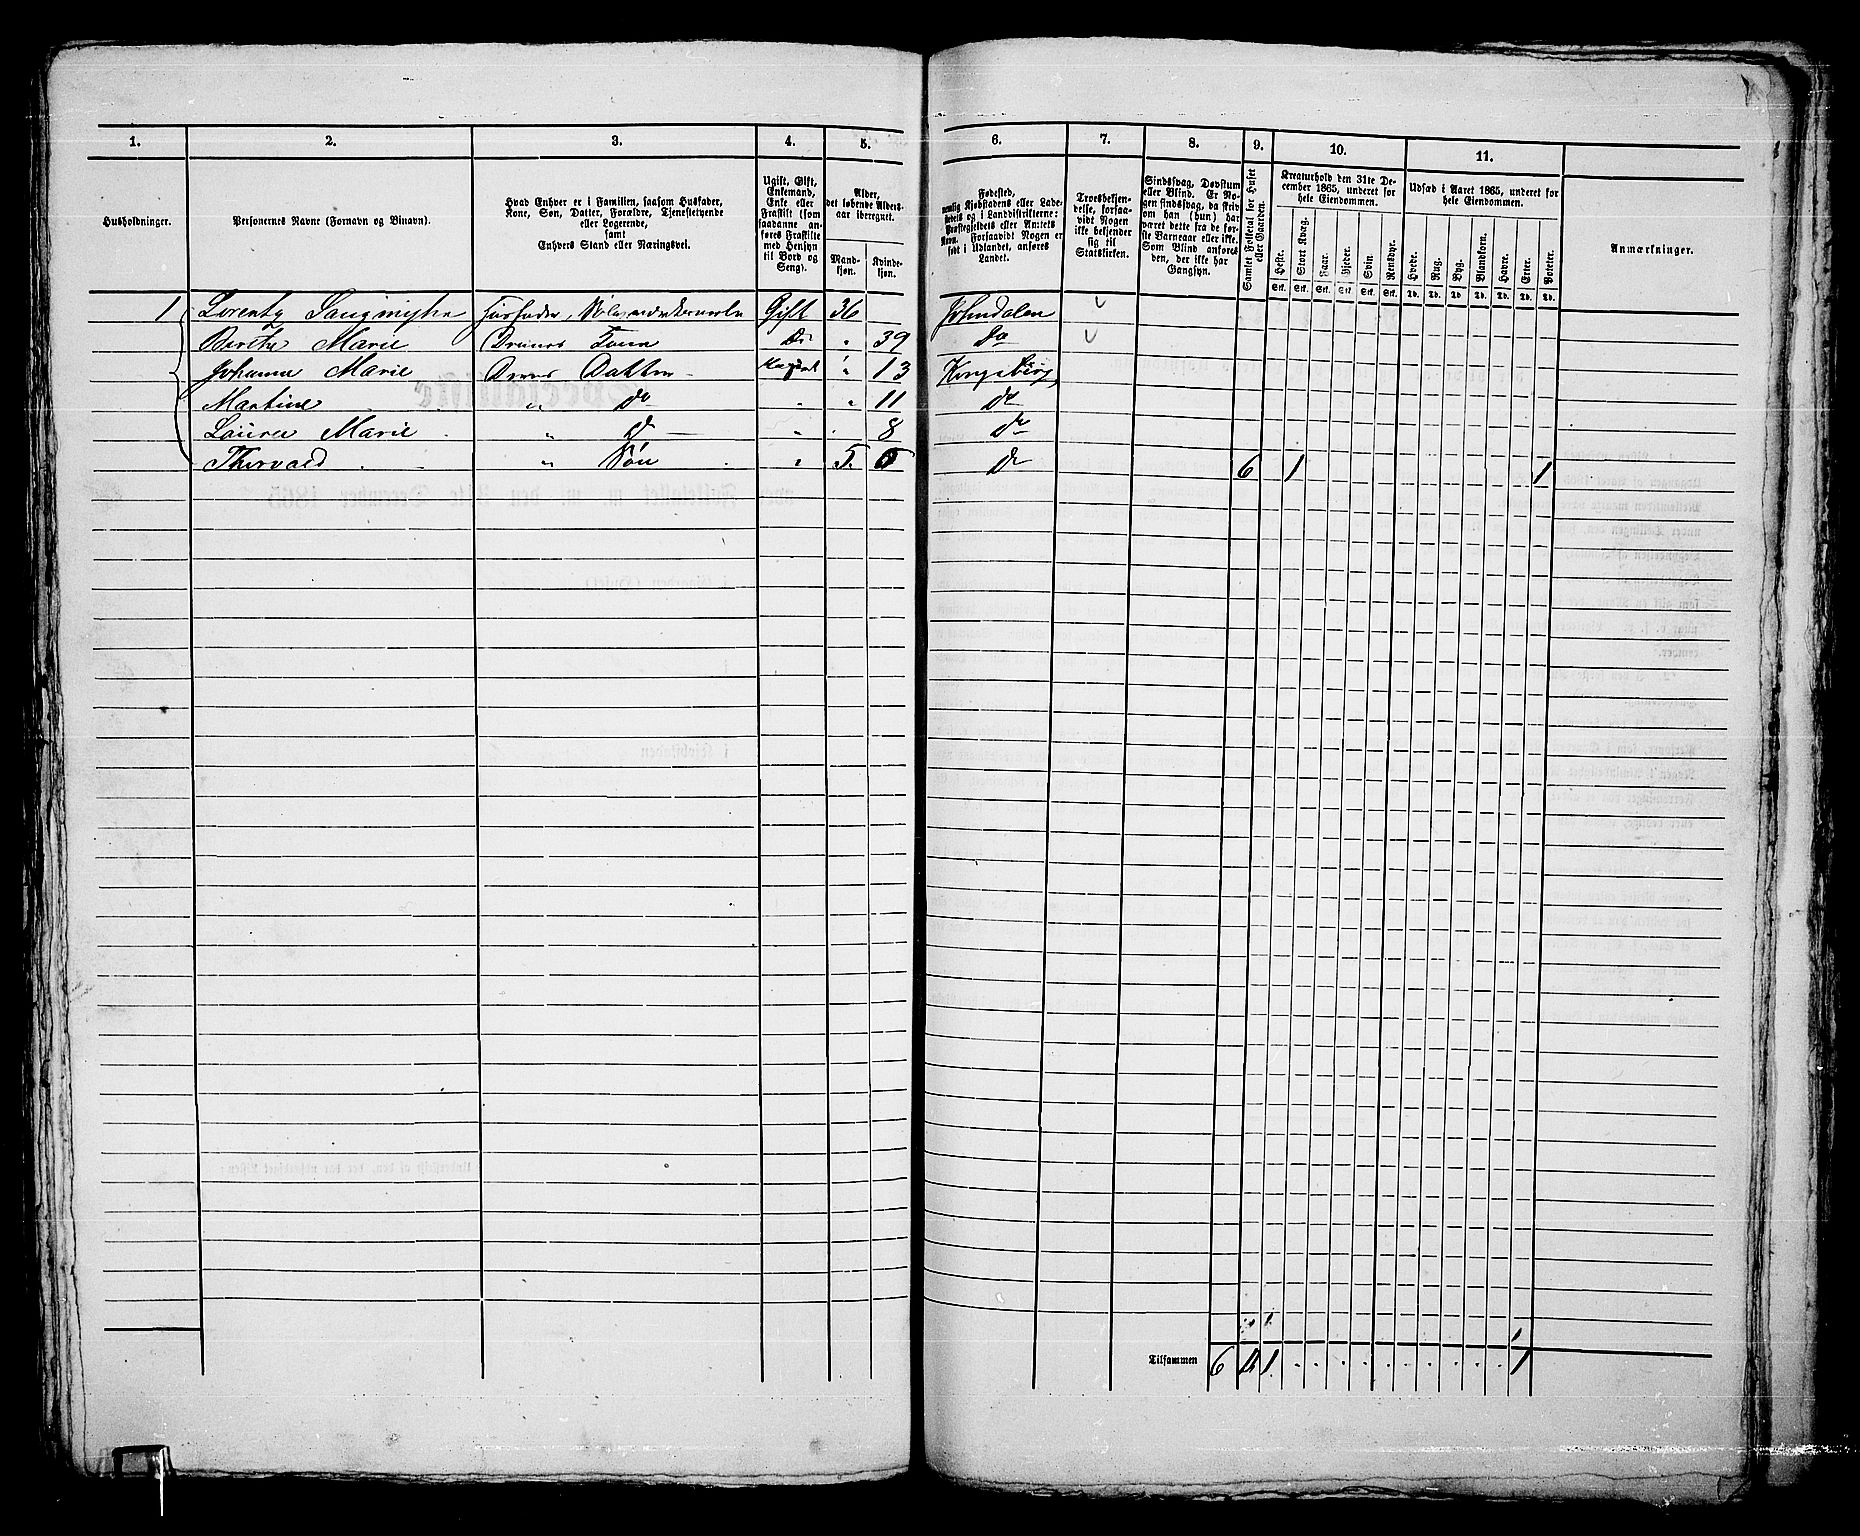 1. 2. 3. 4. 5. 6. 7. 8. 9. 10. 11.
Husholdninger.
Personernes Navne (Fornavn og Binavn).
Hvad Enhver er i Familien, saasom Husfader,
Kone, Søn, Datter, Forældre, Tjenestetyende
eller Logerende,
samt
Enhvers Stand eller Næringsvei.
Ugift, Gift,
Enkemand,
Enke eller
Fraskilt (som
saadanne an-
føres Fraskilte
med Hensyn
til Bord og
Seng).
Alder,
det løbende Alders-
aar iberegnet.
Mand-
kjøn.
Kvinde-
kjøn.
Fødested,
nemlig Kjøbstadens eller Lade-
stedets og i Landdistrikterne:
Præstegjeldets eller Amtets
Navn. Forsaavidt Nogen er
født i Udlandet, anføres
Landet.
Troesbekjen-
delse, forsaa-
vidt Nogen
ikke bekjender
sig til
Statskirken.
Sindssvag, Døvstum
eller Blind. Er No-
gen sindssvag, da skriv
om han (hun) har
været dette fra de før-
ste Barneaar eller ikke.
Som Blind anføres
den, der ikke har
Gangsyn.
Samlet Folketal for Huset
eller Gaarden.
Kreaturhold den 31te De-
cember 1865, underet for
hele Eiendommen.
Heste. Stort Kvæg. Faar. Gjeder. Svin. Rensdyr.
Stk. Stk. Stk. Stk. Stk. Stk.
Udsæd i Aaret 1865, underet for
hele Eiendommen.
Hvede. Rug. Byg. Blandkorn. Havre. Erter. Poteter.
Td. Td. Td. Td. Td. Td. Td.
Anmærkninger.
1 Gift 36 Johndalen
Berthe Marie Do " 39 Do
Johanne Marie Datter " 13 Kongsberg
Martine " do " " 11 do
Laura Marie " d " 8 do
Thorvald " Søn " 5 do 6 1 1
Tilsammen 6 1 1